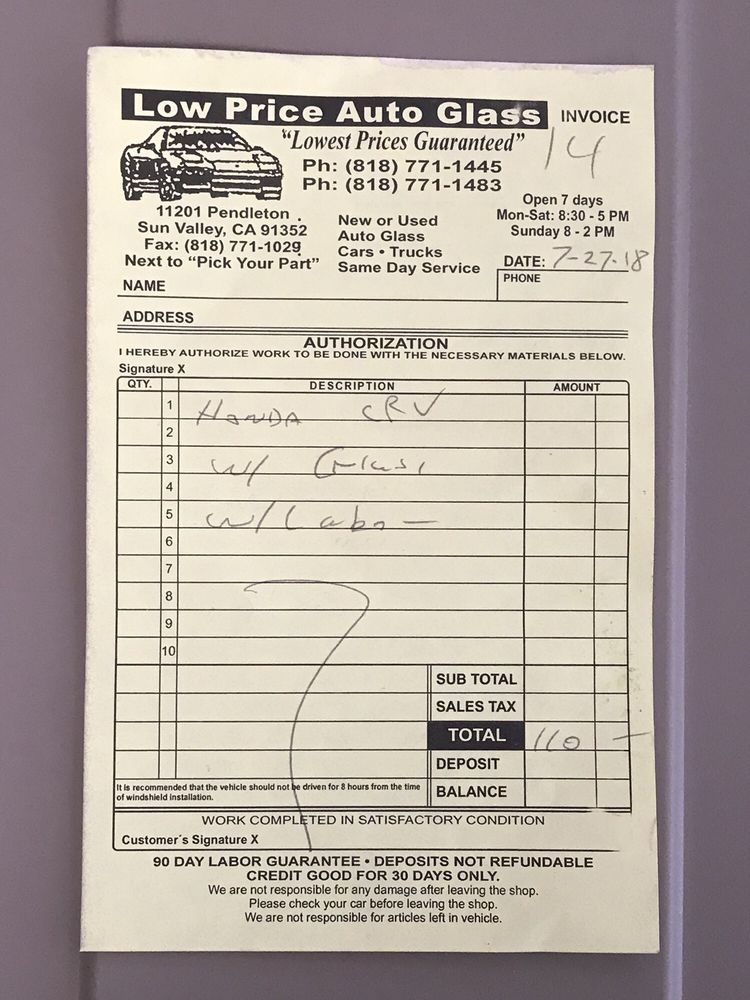 Low Price Auto Glass
INVOICE
"Lowest Prices Guaranteed"
14
Ph: (818) 771-1445
Ph: (818) 771-1483
11201 Pendleton
Sun Valley, CA 91352
Fax: (818) 771-1029
Next to "Pick Your Part"
New or Used
Auto Glass
Cars • Trucks
Same Day Service
Open 7 days
Mon-Sat: 8:30 - 5 PM
Sunday 8 - 2 PM
DATE: 7-27-18
PHONE
NAME
ADDRESS
AUTHORIZATION
I HEREBY AUTHORIZE WORK TO BE DONE WITH THE NECESSARY MATERIALS BELOW.
Signature X
QTY. DESCRIPTION AMOUNT
1 HONDA CRV
2
3 w/ Glass
4
5 w/ Labor
6
7
8
9
10
SUB TOTAL
SALES TAX
TOTAL 110 —
DEPOSIT
It is recommended that the vehicle should not be driven for 8 hours from the time
of windshield installation.
BALANCE
WORK COMPLETED IN SATISFACTORY CONDITION
Customer's Signature X
90 DAY LABOR GUARANTEE • DEPOSITS NOT REFUNDABLE
CREDIT GOOD FOR 30 DAYS ONLY.
We are not responsible for any damage after leaving the shop.
Please check your car before leaving the shop.
We are not responsible for articles left in vehicle.